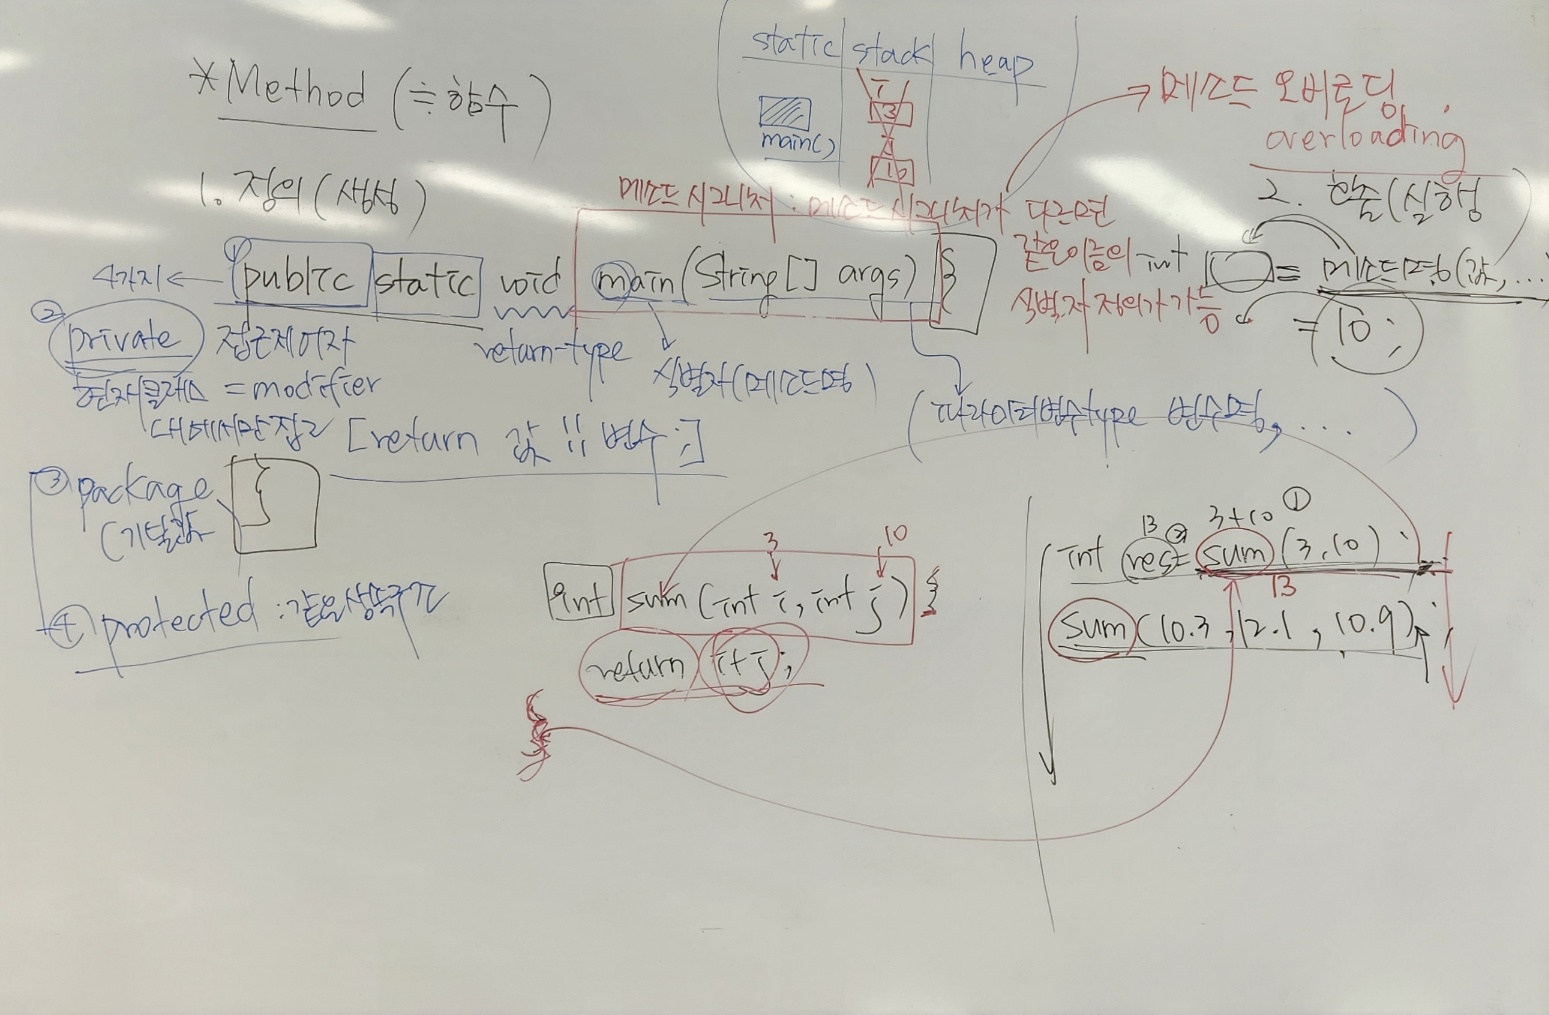 static stack heap
main()
i
3
j
10
*Method (≒함수)
메소드 오버로딩
overloading
1. 정의(생성)
메소드 시그니처 : 메소드 시그니처가 다르면
같은 이름의
식별자 정의가 가능
2. 호출(실행
4가지 ← ① public static void main(String[] args) {
int = 메소드명(값, ...
= 10;
② private 접근제어자
= modifier
현재클래스
내에서만 접근
return-type
식별자(메소드명)
(파라미터변수type 변수명, ....)
[return 값 !! 변수 ;]
③ package
(기본값
}
④ protected : 같은
3 10
int sum(int i, int j) {
return i+j;
}
13 ② 3+10 ①
int res = sum(3, 10);
13
sum(10.3, 12.1, 10.9);